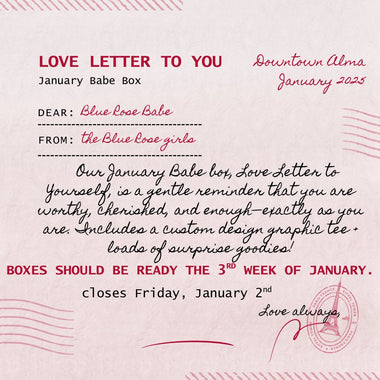 LOVE LETTER TO YOU
January Babe Box
Downtown Alma
January 2025
DEAR: Blue Rose Babe
FROM: the Blue Rose girls
Our January Babe box, Love Letter to
Yourself, is a gentle reminder that you are
worthy, cherished, and enough—exactly as you
are. Includes a custom design graphic tee +
loads of surprise goodies!
BOXES SHOULD BE READY THE 3RD WEEK OF JANUARY.
closes Friday, January 2nd
Love always,